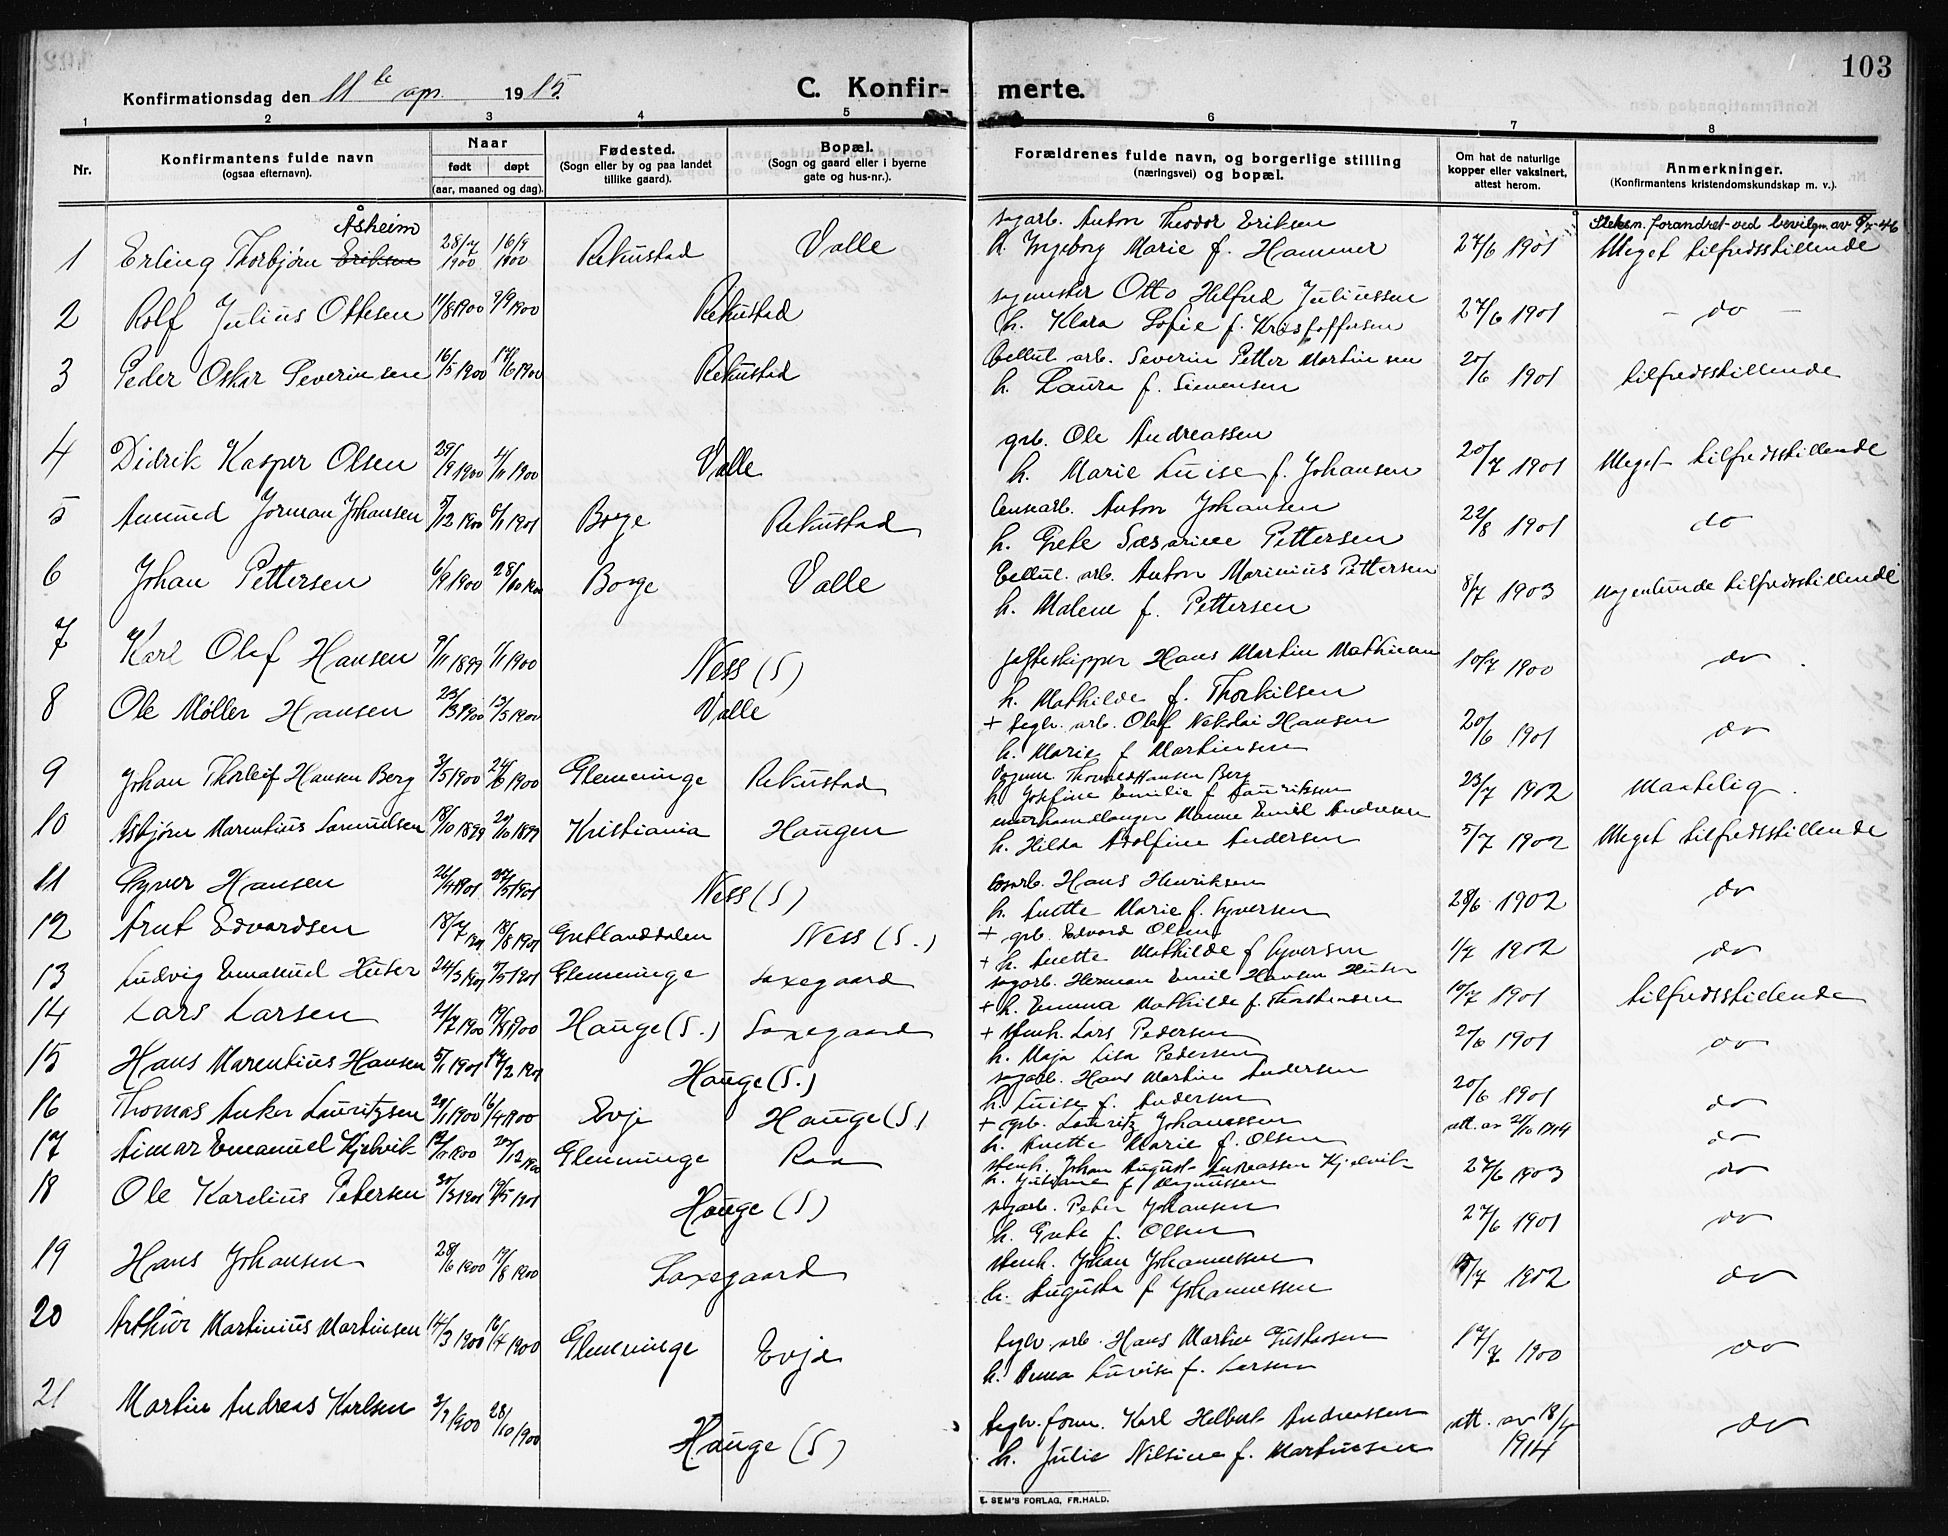 103
Konfirmationsdag den 11te apr. 1915.
C. Konfirmerte.
1 2 3 4 5 6 7 8
Nr. Konfirmantens fulde navn (ogsaa efternavn). Naar født døpt (aar, maaned og dag). Fødested. (Sogn eller by og paa landet tillike gaard). Bopæl. (Sogn og gaard eller i byerne gate og hus-nr.). Forældrenes fulde navn, og borgerlige stilling (næringsvei) og bopæl. Om hat de naturlige kopper eller vaksinert, attest herom. Anmerkninger. (Konfirmantens kristendomskundskap m. v.).
Åsheim sagarb. Anton Theodor Eriksen forandret ved bevilgn. av
1 Erling Thorbjørn Eriksen 1900 16/9 1900 Rekustad Valle h. Ingeborg Marie f. Hammer 27/6 1901 Meget tilfredsstillende
sagmester Otto Helfred Juliussen
2 Rolf Julius Ottesen 11/8 1900 9/9 1900 Rekustad h. Klara Sofie f. Kristoffersen 27/6 1901 - do -
Cellul. arb. Severin Petter Martinsen
3 Peder Oskar Severinsen 16/5 1900 17/6 1900 Rekustad h. Laura f. Simensen 20/6 1901 tilfredsstillende
grb. Ole Andreassen
4 Didrik Kasper Olsen 29/9 1900 /11 1900 Valle h. Marie Luise f. Johansen 20/7 1901 Meget tilfredsstillende
Anton Johansen
5 Amund Jorman Johansen 5/12 1900 6/1 1901 Borge Rekustad h. Grete Pettersen 22/8 1901 do
Cellul. arb. Anton Marinius Pettersen
6 Johan Pettersen 6/9 1900 28/10 1900 Borge Valle h. Malene f. Pettersen 8/7 1903 nogenlunde tilfredsstillende
jagteskipper Hans Martin Mathisen
7 Karl Olaf Hansen 9/11 1899 1/1 1900 Ness (S) h. Mathilde f. Thorkilsen 10/7 1900 do.
+ teglv. arb. Olaf Nikolai Hansen
8 Ole Møller Hansen 23/3 1900 13/5 1900 Valle h. Marie f Martinsen 20/6 1901 do
Thorvald Hansen Berg
9 Johan Thorleif Hansen Berg 3/5 1900 24/6 1900 Glemminge Rekustad h Josefine Emilie f Lauritsen 23/7 1902 Maatelig.
murhandlanger Emil Andresen
10 Asbjørn Marentius Samuelsen 18/10 1899 1899 Kristiania Haugen h. Hilda Adolfine Andersen 5/7 1902 Meget tilfredsstillende
Hans Henriksen
11 Syver Hansen 26/4 1901 27/5 1901 Ness (S) h. Anette Marie f. Syversen 28/6 1902 do
+ grb. Edvard Olsen
12 Arnt Edvardsen 18/7 1901 18/8 1901 Ness (S.) + h. Anette Mathilde f Syversen 1/7 1902 do
sagarb. Herman Emil Hansen Huser
13 Ludvig Emanuel Huser 24/3 1901 /5 1901 Glemminge Saxegaard + h. Emma Mathilde f. Thorstensen 10/7 1901 tilfredsstillende
+ stenh. Lars Pedersen
14 Lars Larsen /7 1900 19/8 1900 Hauge (S.) Saxegaard h. Maja Lisa Pedersen 27/6 1901 do
sagarb. Hans Martin Andersen
15 Hans Marentius Hansen 5/1 1901 17/2 1901 Hauge (S.) h. Luise f. Andersen 20/6 1901 do
+ grb. Lauritz Johannessen
16 Thomas Anker Lauritzsen 1900 16/4 1900 Evje Hauge (S) h. Anette Marie f. Olsen att. av 1914 do
stenh. Johan August Andreassen Kjelvik
17 Aimar Emanuel Kjelvik 1900 /12 1900 Glemminge Raa h. f Magnussen 27/6 1903 do
sagarb. Peder Johansen
18 Ole Karelius Petersen /3 1901 19/5 1901 Hauge (S) h. Grete f. Olsen 27/6 1901 do
stenh. Johan Johannessen
19 Hans Johansen 28/6 1900 /8 1900 Saxegaard h. Augusta f Johannessen /7 1902 do
teglv. arb. Hans Martin Gustavsen
20 Arthur Martinius Martinsen 14/3 1900 16/4 1900 Glemminge Evje h. Anna Lovise f. Larsen 17/7 1900 do
teglv. form. Karl Helbert Andreassen
21 Martin Andreas Karlsen 1900 28/10 1900 Hauge (S) h. Julie Nilsine f. Martinsen att. av 18/ 1914 do
E. SEM'S FORLAG, FR.HALD.